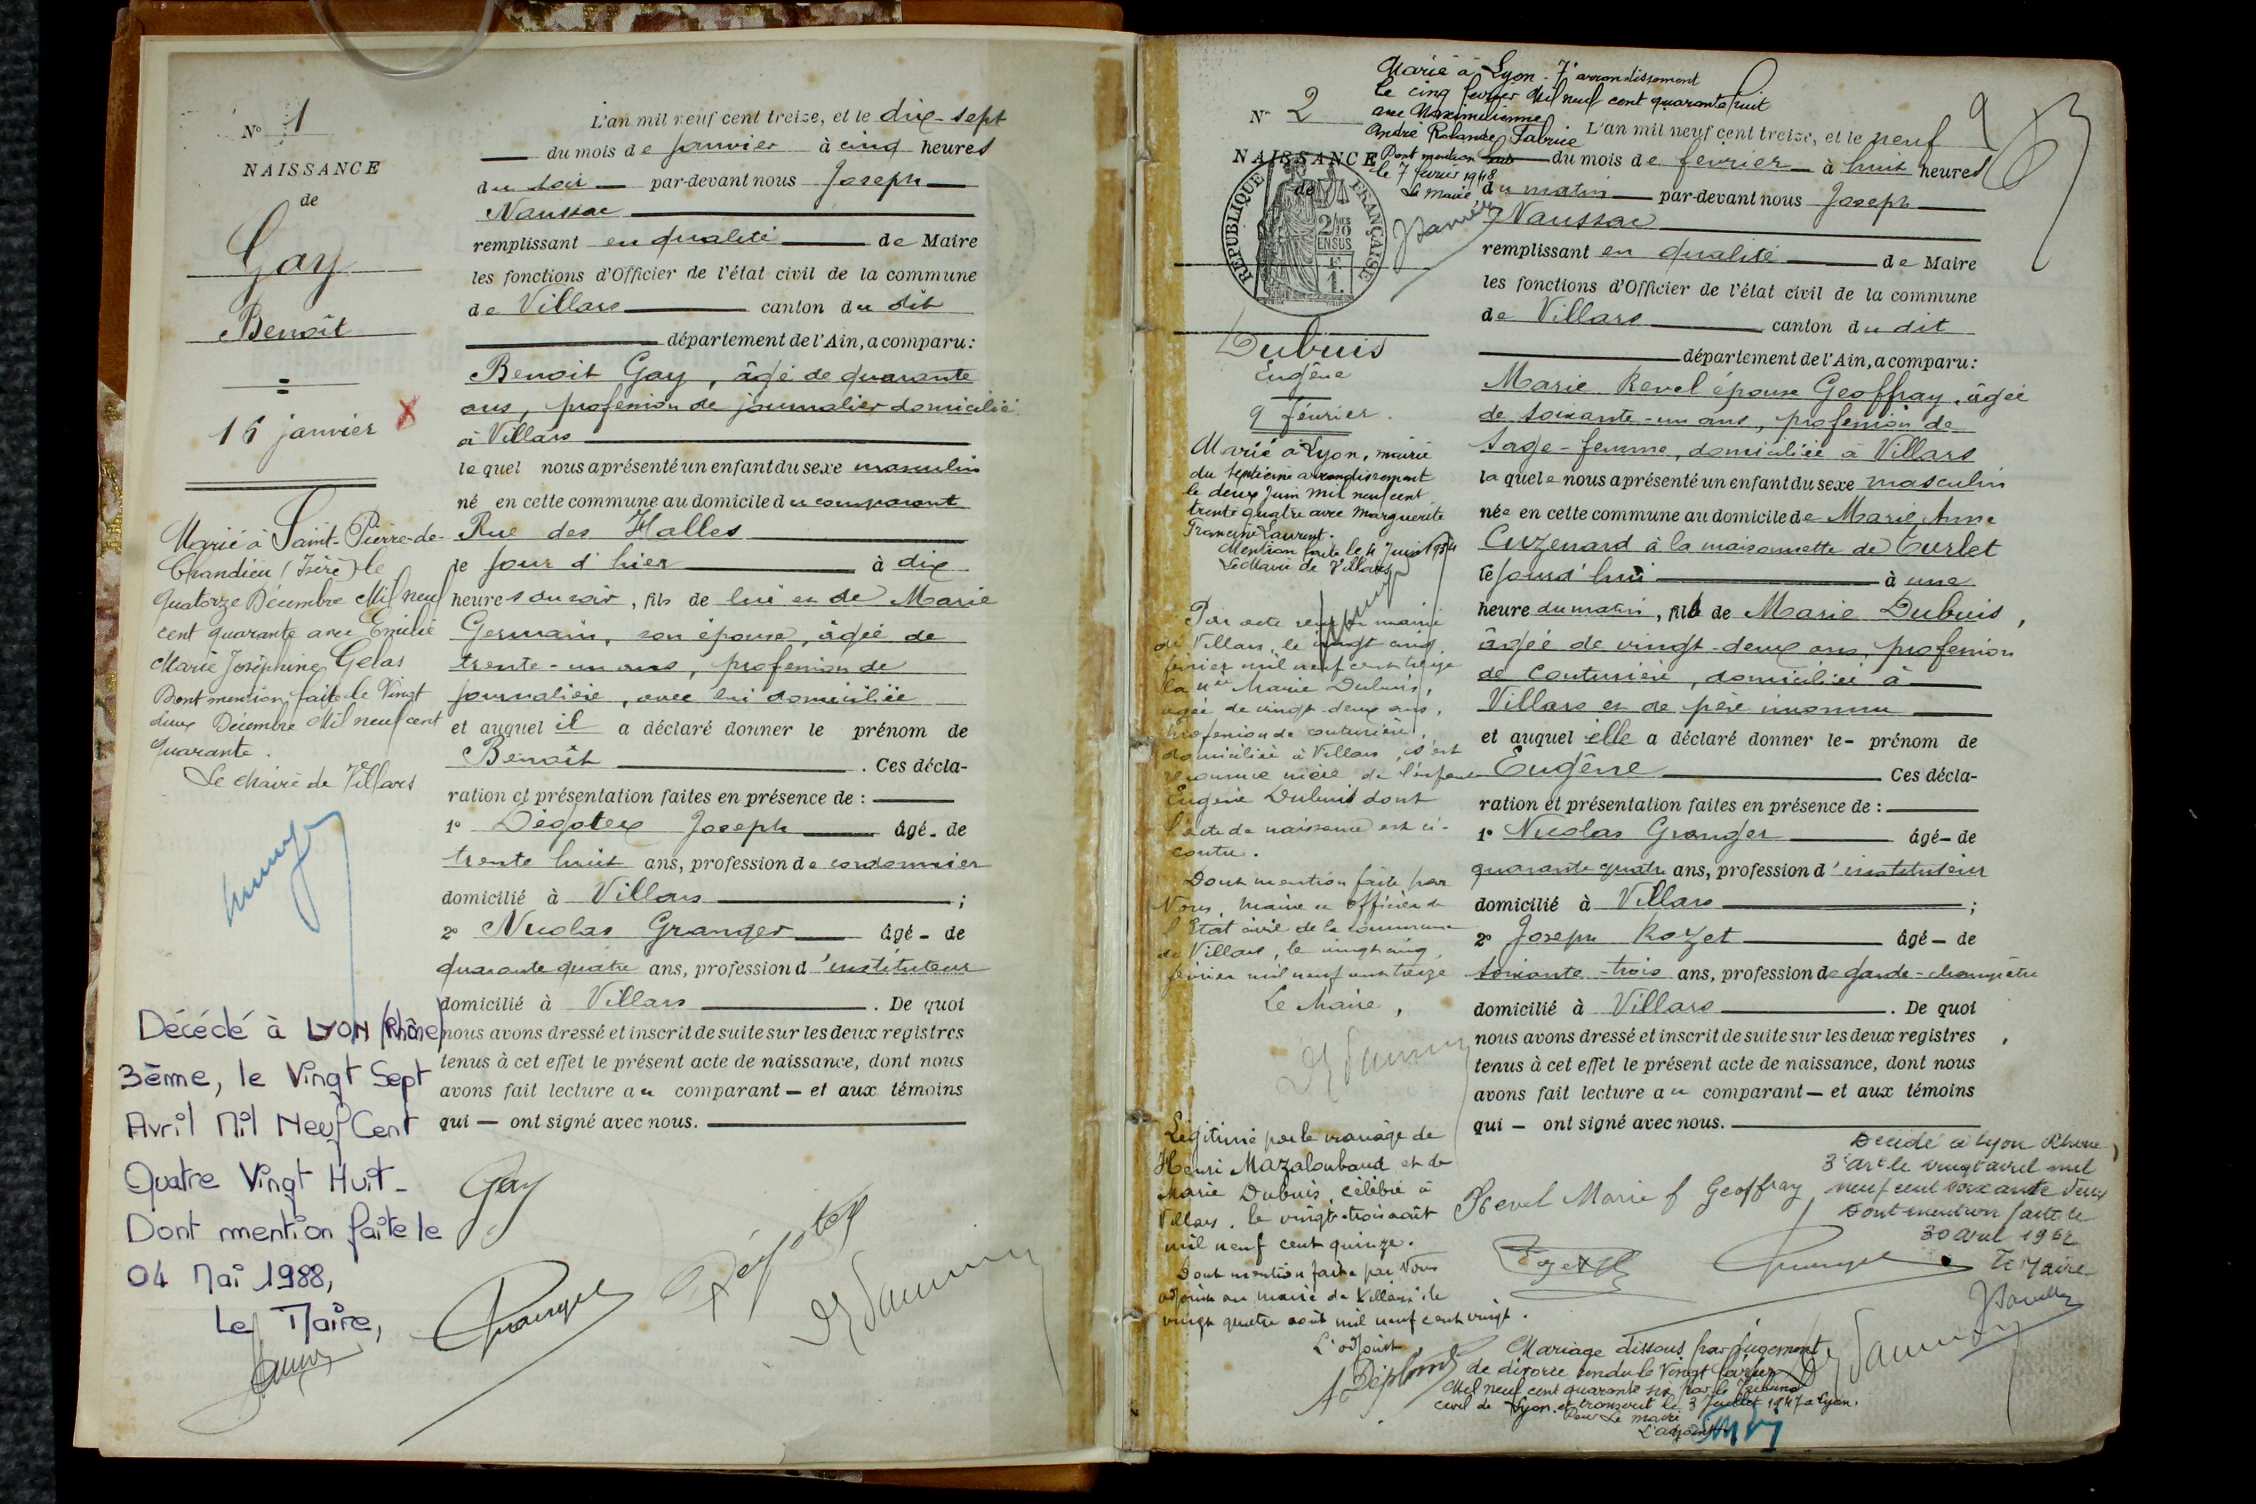 N° 1
NAISSANCE
de
Gay
Benoît
16 janvier
Marié à Saint-Pierre-de-
Chandieu (Isère) le
quatorze Décembre Mil neuf
cent quarante avec Emilie
Marie Joséphine Gelas
Dont mention faite le Vingt
deux Décembre Mil neuf cent
quarante.
Le Maire de Villars
Décédé à LYON (Rhône)
3ème, le Vingt Sept
Avril Mil Neuf Cent
Quatre Vingt Huit -
Dont mention faite le
04 Mai 1988,
Le Maire,
L'an mil neuf cent treize, et le dix-sept
du mois de janvier à cinq heures
du soir par-devant nous Joseph
Naussac
remplissant en qualité de Maire
les fonctions d'Officier de l'état civil de la commune
de Villars canton du dit
département de l'Ain, a comparu :
Benoit Gay, âgé de quarante
ans, profession de journalier domicilié
à Villars
lequel nous a présenté un enfant du sexe masculin
né en cette commune au domicile du comparant
Rue des Halles
le jour d'hier à dix
heures du soir, fils de lui et de Marie
Germain, son épouse, âgée de
trente-un ans, profession de
journalière, avec lui domiciliée
et auquel il a déclaré donner le prénom de
Benoît . Ces décla-
ration et présentation faites en présence de :
1° Dégotex Joseph âgé - de
trente huit ans, profession de cordonnier
domicilié à Villars ;
2° Nicolas Granger âgé - de
quarante quatre ans, profession d'instituteur
domicilié à Villars . De quoi
nous avons dressé et inscrit de suite sur les deux registres
tenus à cet effet le présent acte de naissance, dont nous
avons fait lecture au comparant - et aux témoins
qui - ont signé avec nous.
Gay
Dégotex
Granger
Marié à Lyon - 7e arrondissement
le cinq février Mil neuf cent quarante huit
avec Maximilienne
André Rolande Fabrice
Dont mention
le 7 février 1948
Le Maire
N° 2
NAISSANCE
de
RÉPUBLIQUE FRANÇAISE
2/10
EN SUS
Dubuis
Eugène
9 février.
Marié à Lyon, mairie
du septième arrondissement
le deux Juin mil neuf cent
trente quatre avec Marguerite
Francine Laurent.
Mention faite le 4 Juin 1934
Le Maire de Villars
Par acte reçu en mairie
de Villars, le vingt cinq
février mil neuf cent treize
la née Marie Dubuis,
âgée de vingt-deux ans,
profession de couturière,
domiciliée à Villars, s'est
reconnue mère de l'enfant
Eugène Dubuis dont
l'acte de naissance est ci-
contre.
Dont mention faite par
Nous, Maire et officier de
l'Etat civil de la commune
de Villars, le vingt cinq
février mil neuf cent treize
Le Maire,
Légitimé par le mariage de
Henri Mazaloubaud et de
Marie Dubuis, célébré à
Villars, le vingt-trois août
mil neuf cent quinze.
Dont mention faite par Nous
adjoint au maire de Villars le
vingt quatre août mil neuf cent vingt.
L'adjoint
L'an mil neuf cent treize, et le neuf
du mois de février à huit heures
du matin par-devant nous Joseph
Naussac
remplissant en qualité de Maire
les fonctions d'Officier de l'état civil de la commune
de Villars canton du dit
département de l'Ain, a comparu :
Marie Revel épouse Geoffray, âgée
de soixante-un ans, profession de
sage-femme, domiciliée à Villars
laquelle nous a présenté un enfant du sexe masculin
née en cette commune au domicile de Marie Anne
Cuzenard à la maisonnette de Curlet
le jourd'hui à une
heure du matin, fils de Marie Dubuis,
âgée de vingt-deux ans, profession
de couturière, domiciliée à
Villars et de père inconnu
et auquel elle a déclaré donner le - prénom de
Eugène Ces décla-
ration et présentation faites en présence de :
1° Nicolas Granger âgé - de
quarante quatre ans, profession d'instituteur
domicilié à Villars ;
2° Joseph Rozet âgé - de
soixante-trois ans, profession de garde-champêtre
domicilié à Villars . De quoi
nous avons dressé et inscrit de suite sur les deux registres
tenus à cet effet le présent acte de naissance, dont nous
avons fait lecture au comparant - et aux témoins
qui - ont signé avec nous.
Décédé à Lyon Rhône
3e art le vingt avril mil
neuf cent soixante deux
Dont mention faite le
30 avril 1962
Le Maire
Revel Marie f Geoffray
Granger
Mariage dissous par jugement
de divorce rendu le Vingt février
Mil neuf cent quarante six par le Tribunal
civil de Lyon et transcrit le 3 Juillet 1947 à Lyon.
Pour Le Maire
L'adjoint